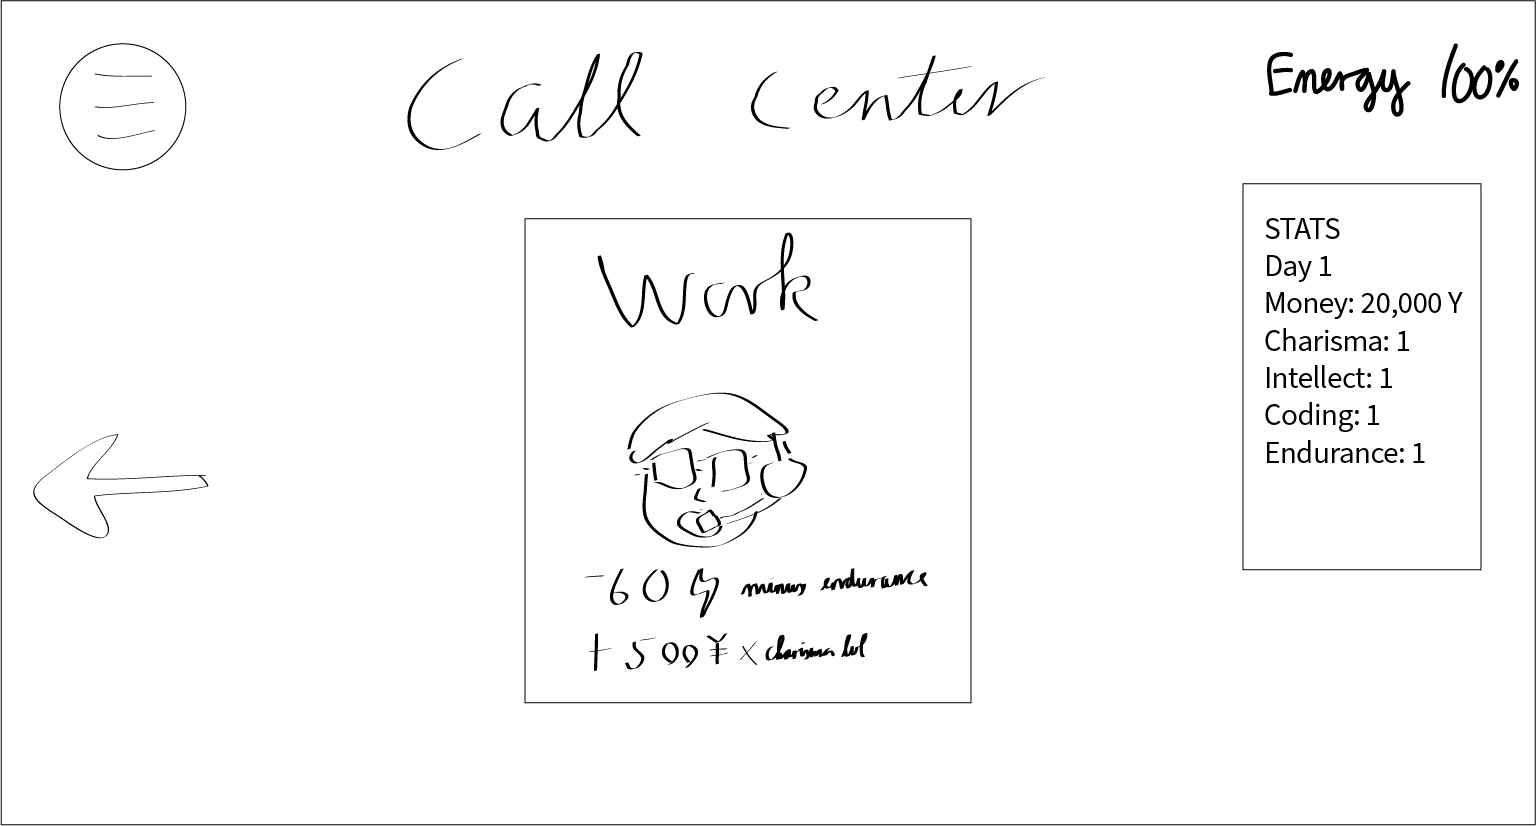 Call Center
Energy 100%
Work
-60 minus endurance
+500¥ x charisma lvl
STATS
Day 1
Money: 20,000 Y
Charisma: 1
Intellect: 1
Coding: 1
Endurance: 1